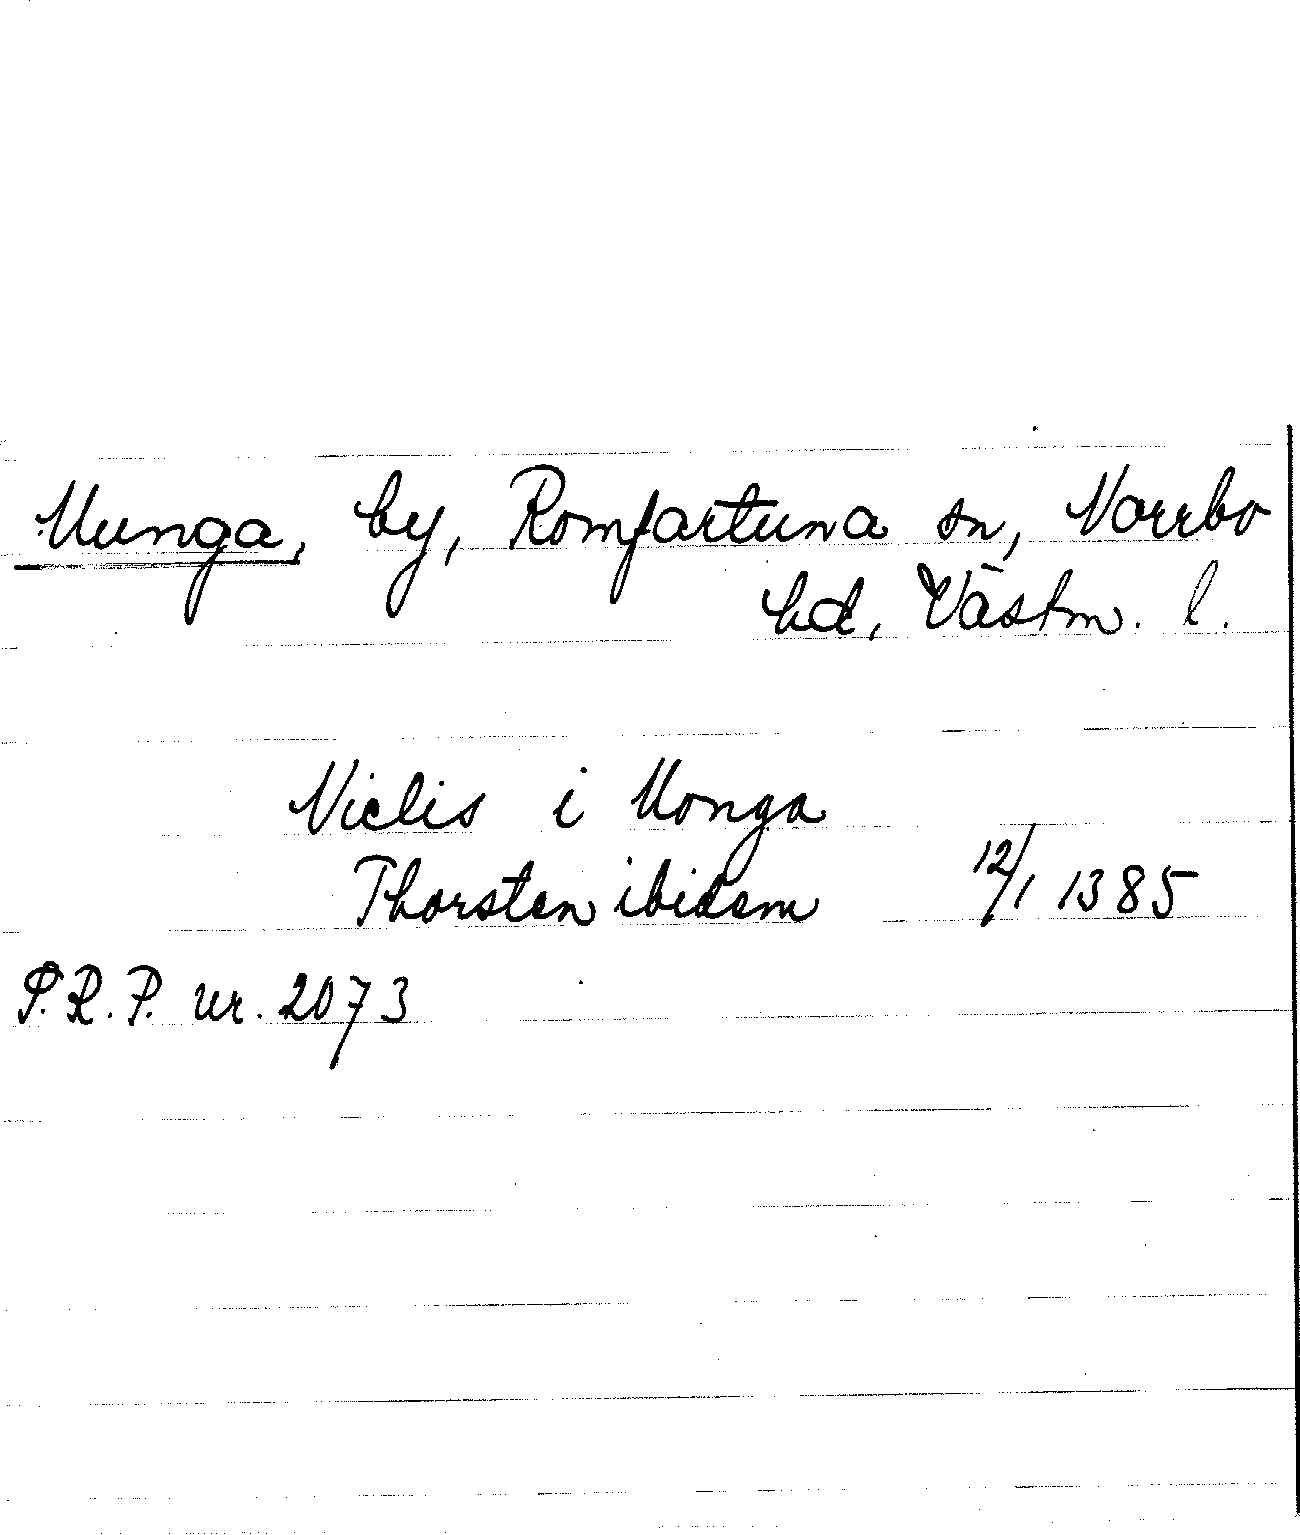 Munga, by, Romfartuna sn, Norrbo
hd, Västm. l.
Niclis i Monga
Thorsten ibidem 12/1 1385
P.R.P. nr. 2073